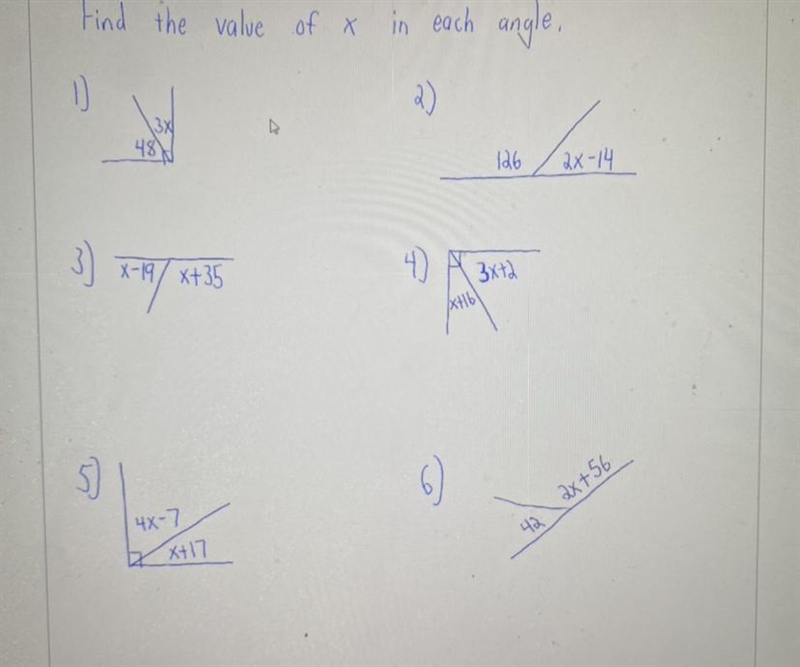 Find the value of x in each angle.
1)
3x
48
2)
126 2x-14
3)
x-19 x+35
4)
3x+2
x+16
5)
4x-7
x+17
6)
2x+56
42